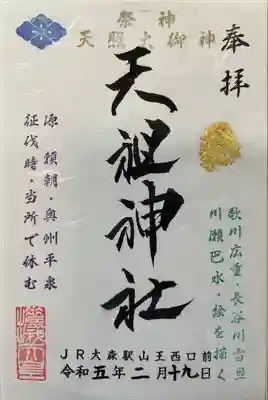 奉拝
歌川広重・長谷川雪旦
川瀬巴水・絵を描く
祭神
天照大御神
天祖神社
源 頼朝・奥州平泉
征伐時・当所で休む
JR大森駅山王西口前
令和五年二月十九日